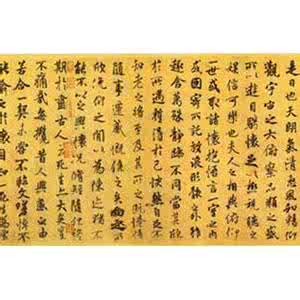 是日也天朗氣清惠風和暢仰
觀宇宙之大俯察品類之盛
所以遊目騁懷足以極視聽之
娛信可樂也夫人之相與俯仰
一世或取諸懷抱悟言一室之內
或因寄所託放浪形骸之外雖
趣舍萬殊靜躁不同當其欣
於所遇暫得於己快然自足不
知老之將至及其所之既惓情
隨事遷感慨係之矣向之所
欣俛仰之間以為陳迹猶不
能不以之興懷況脩短隨化終
期於盡古人云死生亦大矣豈
不痛哉每攬昔人興感之由
若合一契未嘗不臨文嗟悼不
能喻之於懷固知一死